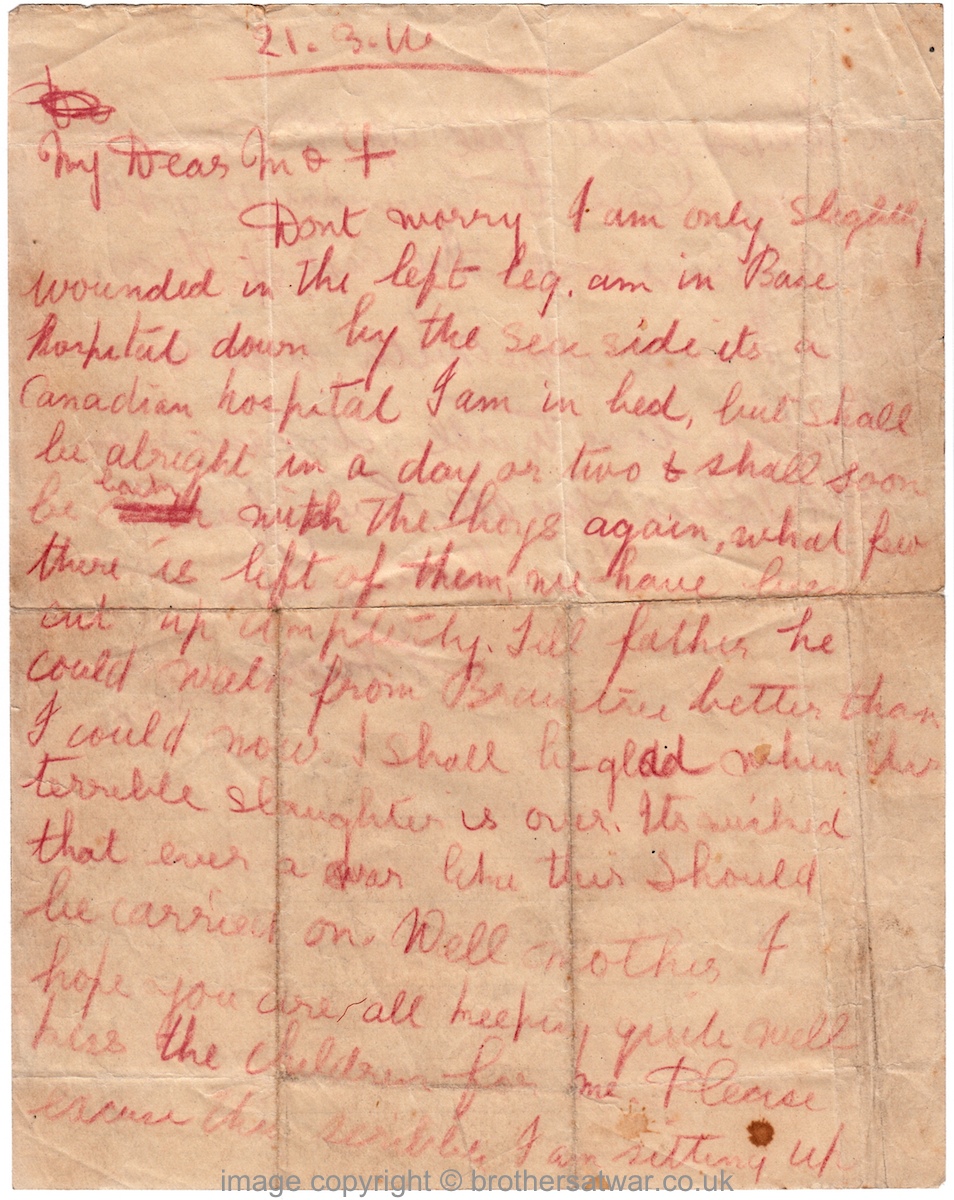 21. 3. 16
My Dear M & F
Dont worry I am only slightly
wounded in the left leg. am in Base
hospital down by the sea side its a
Canadian hospital I am in bed, but shall
be alright in a day or two & shall soon
be back with the boys again, what few
there is left of them, we have been
cut up completely. Tell father he
could walk from Braintree better than
I could now I shall be glad when this
terrible slaughter is over. Its wicked
that ever a war like this should
be carried on. Well mother I
hope you are all keeping quite well
kiss the children for me. Please
excuse this scribble I am sitting up
image copyright © brothersatwar.co.uk